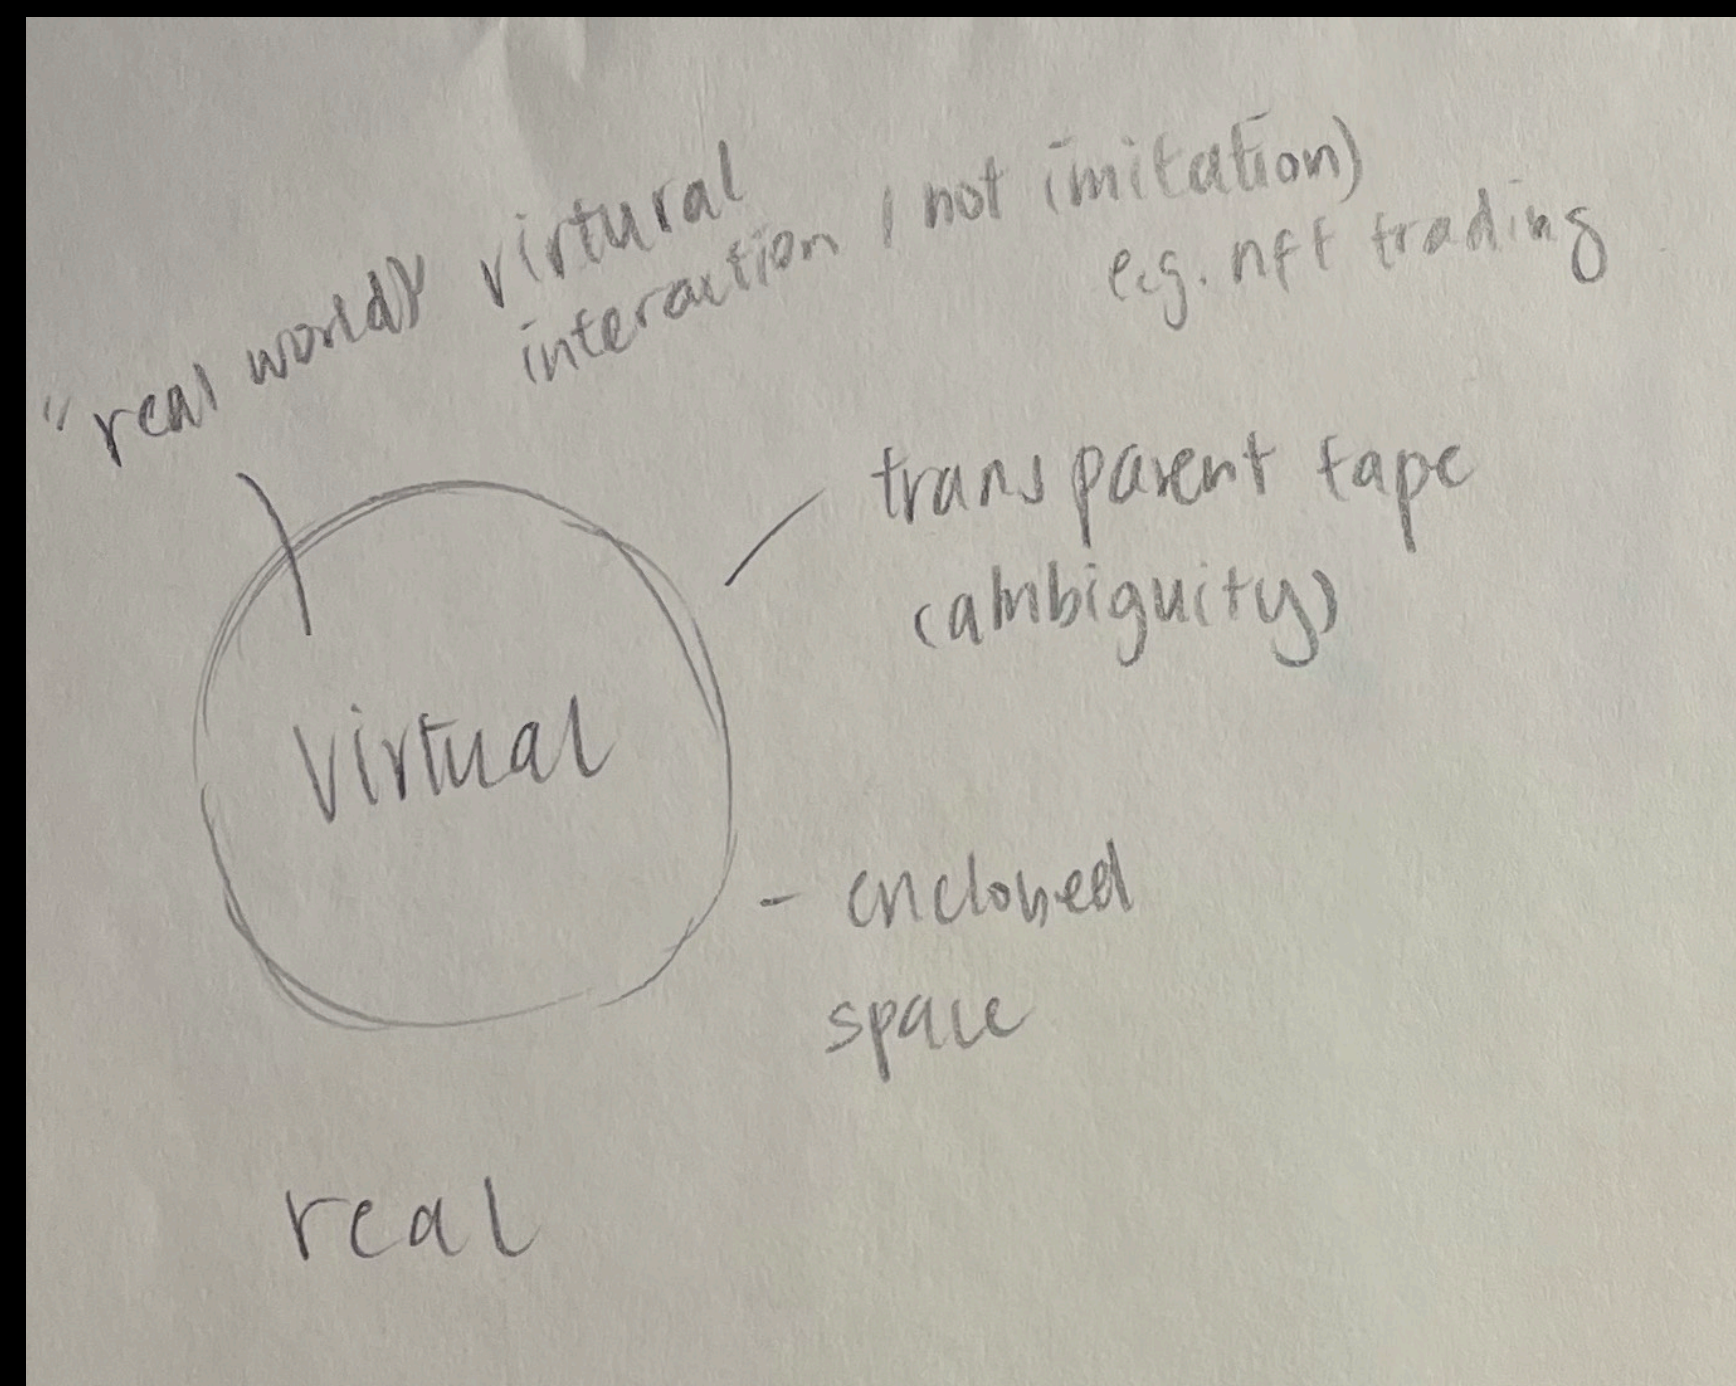 "real world" virtural
interaction (not imitation)
e.g. nft trading
transparent tape
(ambiguity)
virtual
- enclosed
space
real